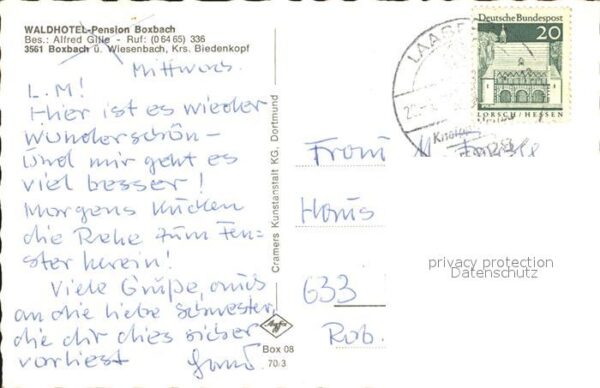 WALDHOTEL-Pension Boxbach
Bes.: Alfred Gille - Ruf: (0 64 65) 336
3561 Boxbach ü. Wiesenbach, Krs. Biedenkopf
Mittwoch
L.M!
Hier ist es wieder
wunderschön-
Und mir geht es
viel besser!
Morgens kucken
die Rehe zum Fen=
ster herein!
Viele Grüße, auch
an die liebe Schwester,
die dir dies sicher
vorliest
Cramers Kunstanstalt KG, Dortmund
Agfa
Box 08
70.3
Deutsche Bundespost
20
LORSCH/HESSEN
LAASP
Frau M.
Haus
633
Rob.
privacy protection
Datenschutz